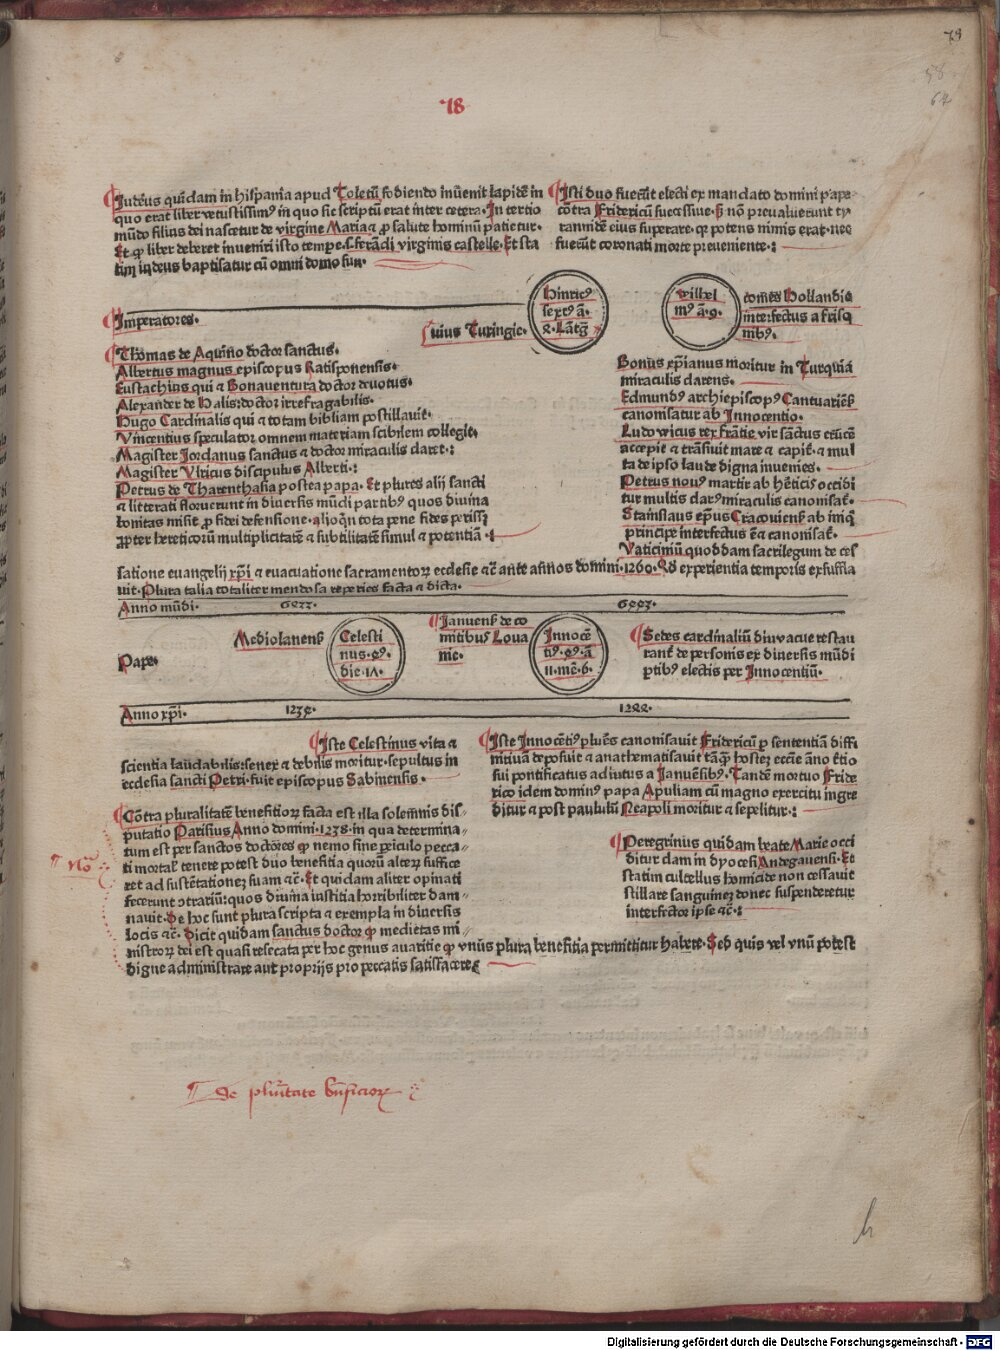 78
78
58
64
Iudeus quidam in hispania apud Toletū fodiendo inuenit lapidē in
quo erat liber vetustissimꝰ in quo sic scriptū erat inter cetera. In tertio
mūdo filius dei nascetur de virgine Maria ⁊ ꝓ salute hominū patietur.
Et ꝙ liber deberet inueniri isto tempe.s.ferādi virginis castelle. Et sta
tim iudeus baptisatur cū omni domo sua.
Isti duo fuerūt electi ex mandato domini pape
cōtra Fridericū successiue. sꝫ nō preualuerunt ty
rannidē eius superare. qꝛ potens nimis erat. nec
fuerūt coronati morte preueniente.:
Imperatores.
Hinricꝰ
sextꝰ ā.
uius Turingie.
wilhel
mꝰ ā.9.
comes Hollandie
interfectus a frisq
nibꝰ.
Thomas de Aquino doctor sanctus.
Albertus magnus episcopus Ratisponensis.
Eustachius qui ⁊ Bonauentura doctor deuotus.
Alexander de Halis: doctor irrefragabilis.
Hugo Cardinalis qui ⁊ totam bibliam postillauit.
Vincentius speculator omnem materiam scibilem collegit.
Magister Jordanus sanctus ⁊ doctor miraculis claret.:
Magister Vlricus discipulus Alberti.:
Petrus de Tharenthasia postea papa. Et plures alij sancti
⁊ litterati floruerunt in diuersis mūdi partibꝰ quos diuina
bonitas misit ꝓ fidei defensione. alioqn tota pene fides perisset
ꝓpter hereticorū multiplicitatē ⁊ subtilitatē simul ⁊ potentiā.:
Bonus xp̄ianus moritur in Turquia
miraculis clarens.
Edmundꝰ archiepiscopꝰ Cantuariens̄
canonisatur ab Innocentio.
Ludowicus rex frācie vir sanctus crucē
accepit ⁊ trāsiuit mare ⁊ capit. ⁊ mul
ta de ipso laude digna inuenies.
Petrus nouꝰ martir ab hēticis occidi
tur multis clarꝰ miraculis canonisat.
Stanislaus ep̄us Cracouiens̄ ab iniq̄
principe interfectus ē ⁊ canonisat.
Vaticiniū quoddam sacrilegum de ces
satione euangelij xp̄i ⁊ euacuatione sacramentorꝫ ecclesie ⁊c̄ ante annos domini.1260. Qd experientia temporis exsuffla
uit. Plura talia totaliter mendosa reperies facta ⁊ dicta.
Anno mūdi.
Pape.
Mediolanens̄
Celesti
nus.
Januens̄ de co
mitibus Loua
nie.
Innocē
Sedes cardinaliū diu vacue restau
rant̄ de personis ex diuersis mūdi
ꝑtibꝰ electis per Innocentiū.
Anno xp̄i.
Iste Celestinus vita ⁊
scientia laudabilis: senex ⁊ debilis moritur. sepultus in
ecclesia sancti Petri. fuit episcopus Sabinensis.
Iste Innocētiꝰ plures canonisauit Fridericū ꝑ sententiā diffi
nitiuā deposuit ⁊ anathematisauit tāqꝫ hostem ecclie āno tertio
sui pontificatus adiutus a Januensibꝰ. Tandē mortuo Fride
rico idem dominꝰ papa Apuliam cū magno exercitu ingre
ditur ⁊ post paululū Neapoli moritur ⁊ sepelitur.:
Cōtra pluralitatē beneficiorꝫ facta est illa solemnis dis-
putatio Parisius Anno domini.1238. in qua determina-
tum est per sanctos doctores ꝙ nemo sine ꝑiculo pecca-
ti mortal̄ tenere potest duo beneficia quorū alterꝫ suffice
ret ad sustētationez suam ⁊c̄. Et quidam aliter opinati
fecerunt ꝯtrariū: quos diuina iusticia horribiliter dam-
nauit. De hoc sunt plura scripta ⁊ exempla in diuersis
locis ⁊c̄. Dicit quidam sanctus doctor ꝙ medietas mi-
nistrorꝫ dei est quasi resecata per hoc genus auaritie ꝙ vnus plura beneficia permittitur habere. Sed quis vel vnū potest
digne administrare aut proprijs pro peccatis satisfacere
Peregrinus quidam beate Marie occi
ditur clam in dyocesi Andegauensi. Et
statim cultellus homicide non cessauit
stillare sanguinez donec suspenderetur
interfector ipse ⁊c̄.:
¶ De pluralitate bnficiorꝫ
h
Digitalisierung gefördert durch die Deutsche Forschungsgemeinschaft - DFG